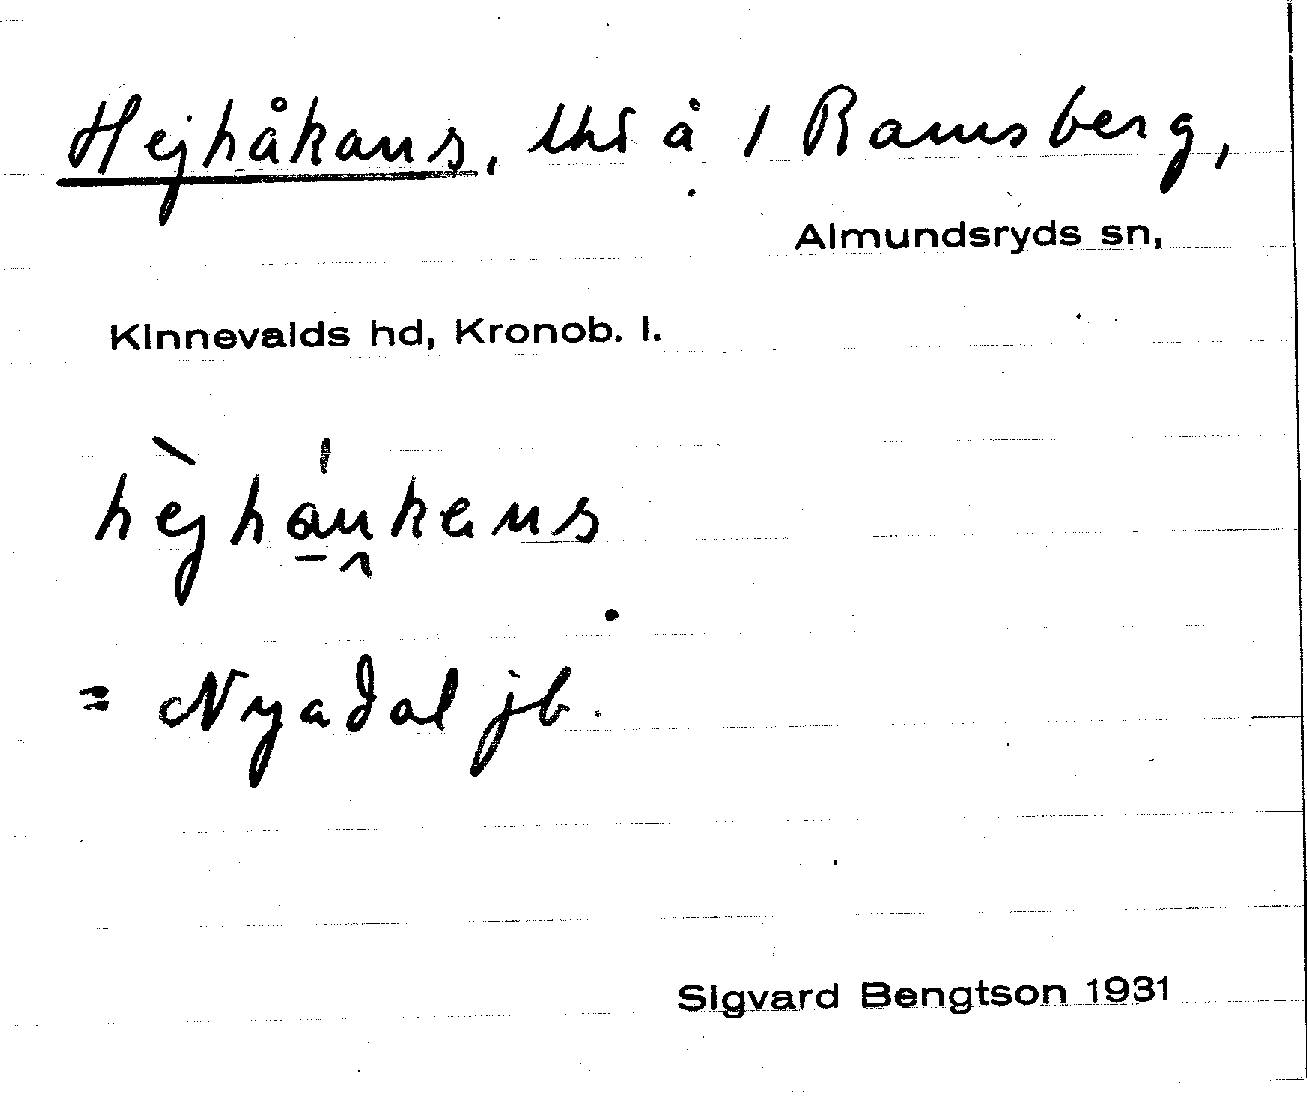 Hejhåkans, lht å 1 Ramsberg,
Almundsryds sn,
Kinnevalds hd, Kronob. l.
hèjháu̯kans
= Nyadal jb.
Sigvard Bengtson 1931